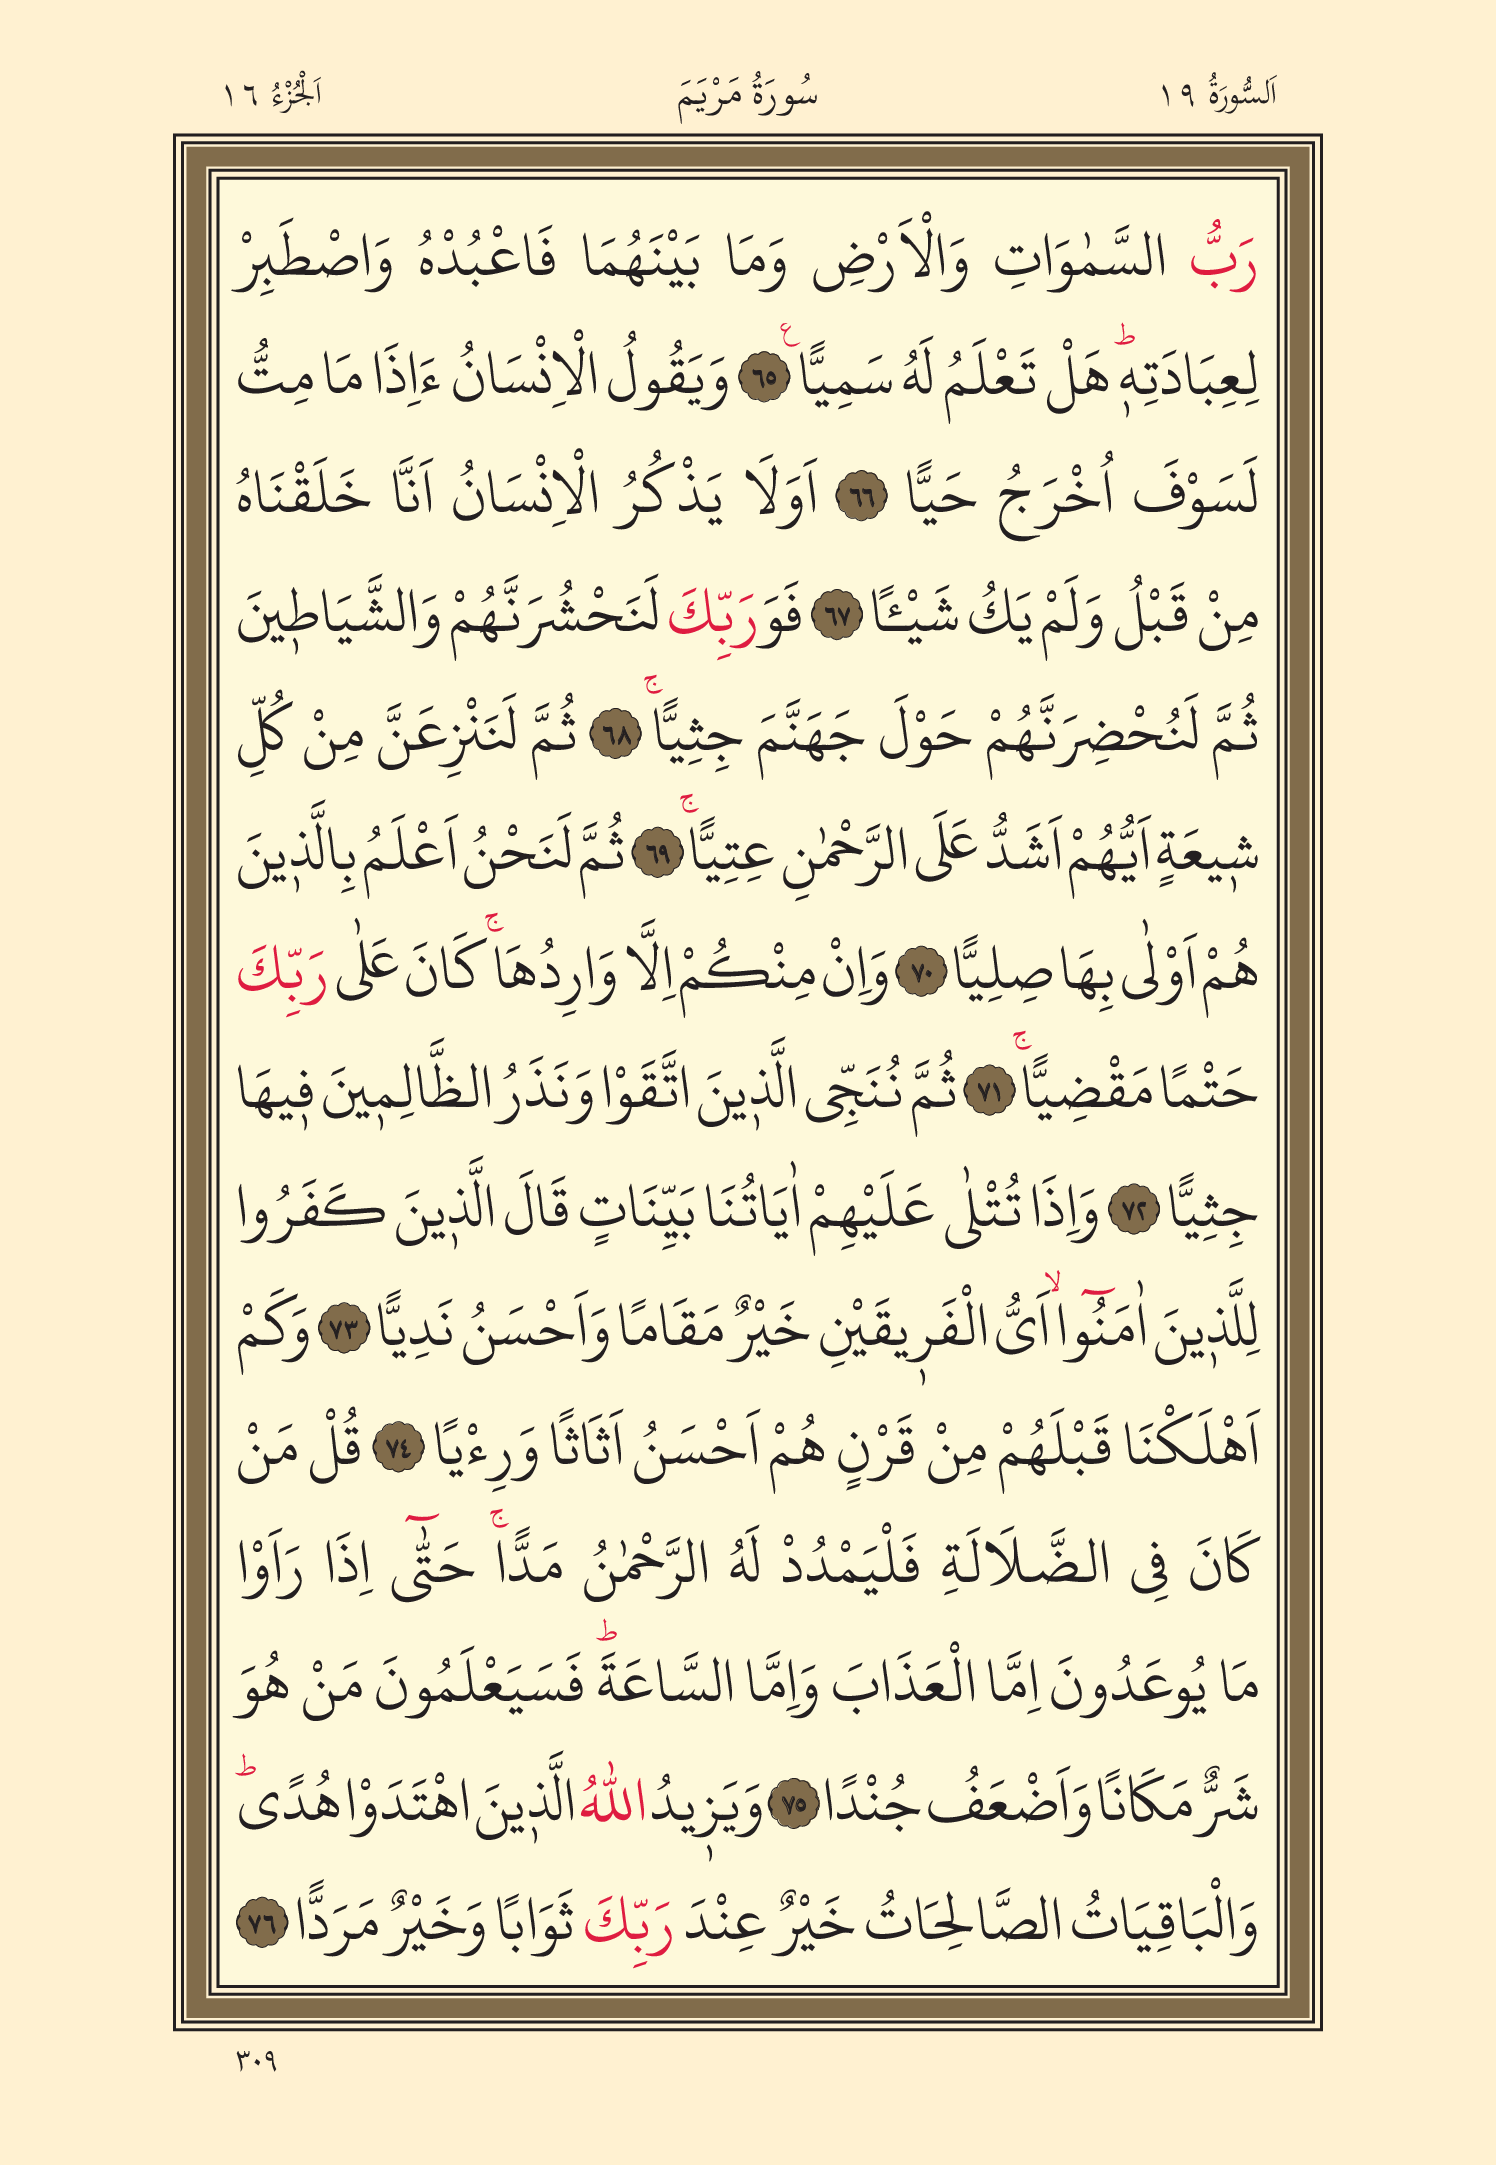 اَلسُّورَةُ ١٩
سُورَةُ مَرْيَمَ
اَلْجُزْءُ ١٦
رَبُّ السَّمٰوَاتِ وَالْاَرْضِ وَمَا بَيْنَهُمَا فَاعْبُدْهُ وَاصْطَبِرْ
لِعِبَادَتِهٖؕ هَلْ تَعْلَمُ لَهُ سَمِيًّاࣖ ﴿٦٥﴾ وَيَقُولُ الْاِنْسَانُ ءَاِذَا مَا مِتُّ
لَسَوْفَ اُخْرَجُ حَيًّا ﴿٦٦﴾ اَوَلَا يَذْكُرُ الْاِنْسَانُ اَنَّا خَلَقْنَاهُ
مِنْ قَبْلُ وَلَمْ يَكُ شَيْـًٔا ﴿٦٧﴾ فَوَرَبِّكَ لَنَحْشُرَنَّهُمْ وَالشَّيَاطٖينَ
ثُمَّ لَنُحْضِرَنَّهُمْ حَوْلَ جَهَنَّمَ جِثِيًّاۚ ﴿٦٨﴾ ثُمَّ لَنَنْزِعَنَّ مِنْ كُلِّ
شٖيعَةٍ اَيُّهُمْ اَشَدُّ عَلَى الرَّحْمٰنِ عِتِيًّاۚ ﴿٦٩﴾ ثُمَّ لَنَحْنُ اَعْلَمُ بِالَّذٖينَ
هُمْ اَوْلٰى بِهَا صِلِيًّا ﴿٧٠﴾ وَاِنْ مِنْكُمْ اِلَّا وَارِدُهَاۚ كَانَ عَلٰى رَبِّكَ
حَتْمًا مَقْضِيًّاۚ ﴿٧١﴾ ثُمَّ نُنَجِّى الَّذٖينَ اتَّقَوْا وَنَذَرُ الظَّالِمٖينَ فٖيهَا
جِثِيًّا ﴿٧٢﴾ وَاِذَا تُتْلٰى عَلَيْهِمْ اٰيَاتُنَا بَيِّنَاتٍ قَالَ الَّذٖينَ كَفَرُوا
لِلَّذٖينَ اٰمَنُٓواۙ اَىُّ الْفَرٖيقَيْنِ خَيْرٌ مَقَامًا وَاَحْسَنُ نَدِيًّا ﴿٧٣﴾ وَكَمْ
اَهْلَكْنَا قَبْلَهُمْ مِنْ قَرْنٍ هُمْ اَحْسَنُ اَثَاثًا وَرِءْيًا ﴿٧٤﴾ قُلْ مَنْ
كَانَ فِى الضَّلَالَةِ فَلْيَمْدُدْ لَهُ الرَّحْمٰنُ مَدًّاۚ حَتّٰٓى اِذَا رَاَوْا
مَا يُوعَدُونَ اِمَّا الْعَذَابَ وَاِمَّا السَّاعَةَؕ فَسَيَعْلَمُونَ مَنْ هُوَ
شَرٌّ مَكَانًا وَاَضْعَفُ جُنْدًا ﴿٧٥﴾ وَيَزٖيدُ اللّٰهُ الَّذٖينَ اهْتَدَوْا هُدًىؕ
وَالْبَاقِيَاتُ الصَّالِحَاتُ خَيْرٌ عِنْدَ رَبِّكَ ثَوَابًا وَخَيْرٌ مَرَدًّا ﴿٧٦﴾
٣٠٩